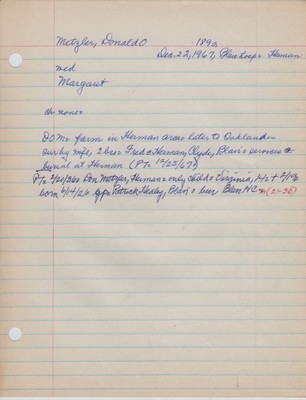 Metzler, Donald O 1892
Dec. 22, 1967, Herman
wed
Margaret
ch: none
DOMs farm in Herman area later to Oakland
surv by wife, 2 bros Fred Herman, Clyde, Blair services
burial at Herman (PTs 12/25/67)
PTs 2/20/36: Don Metzler, Herman only child Virginia,
born 6/14/26 Patrick Healey, Blair Blair NC (2-36)